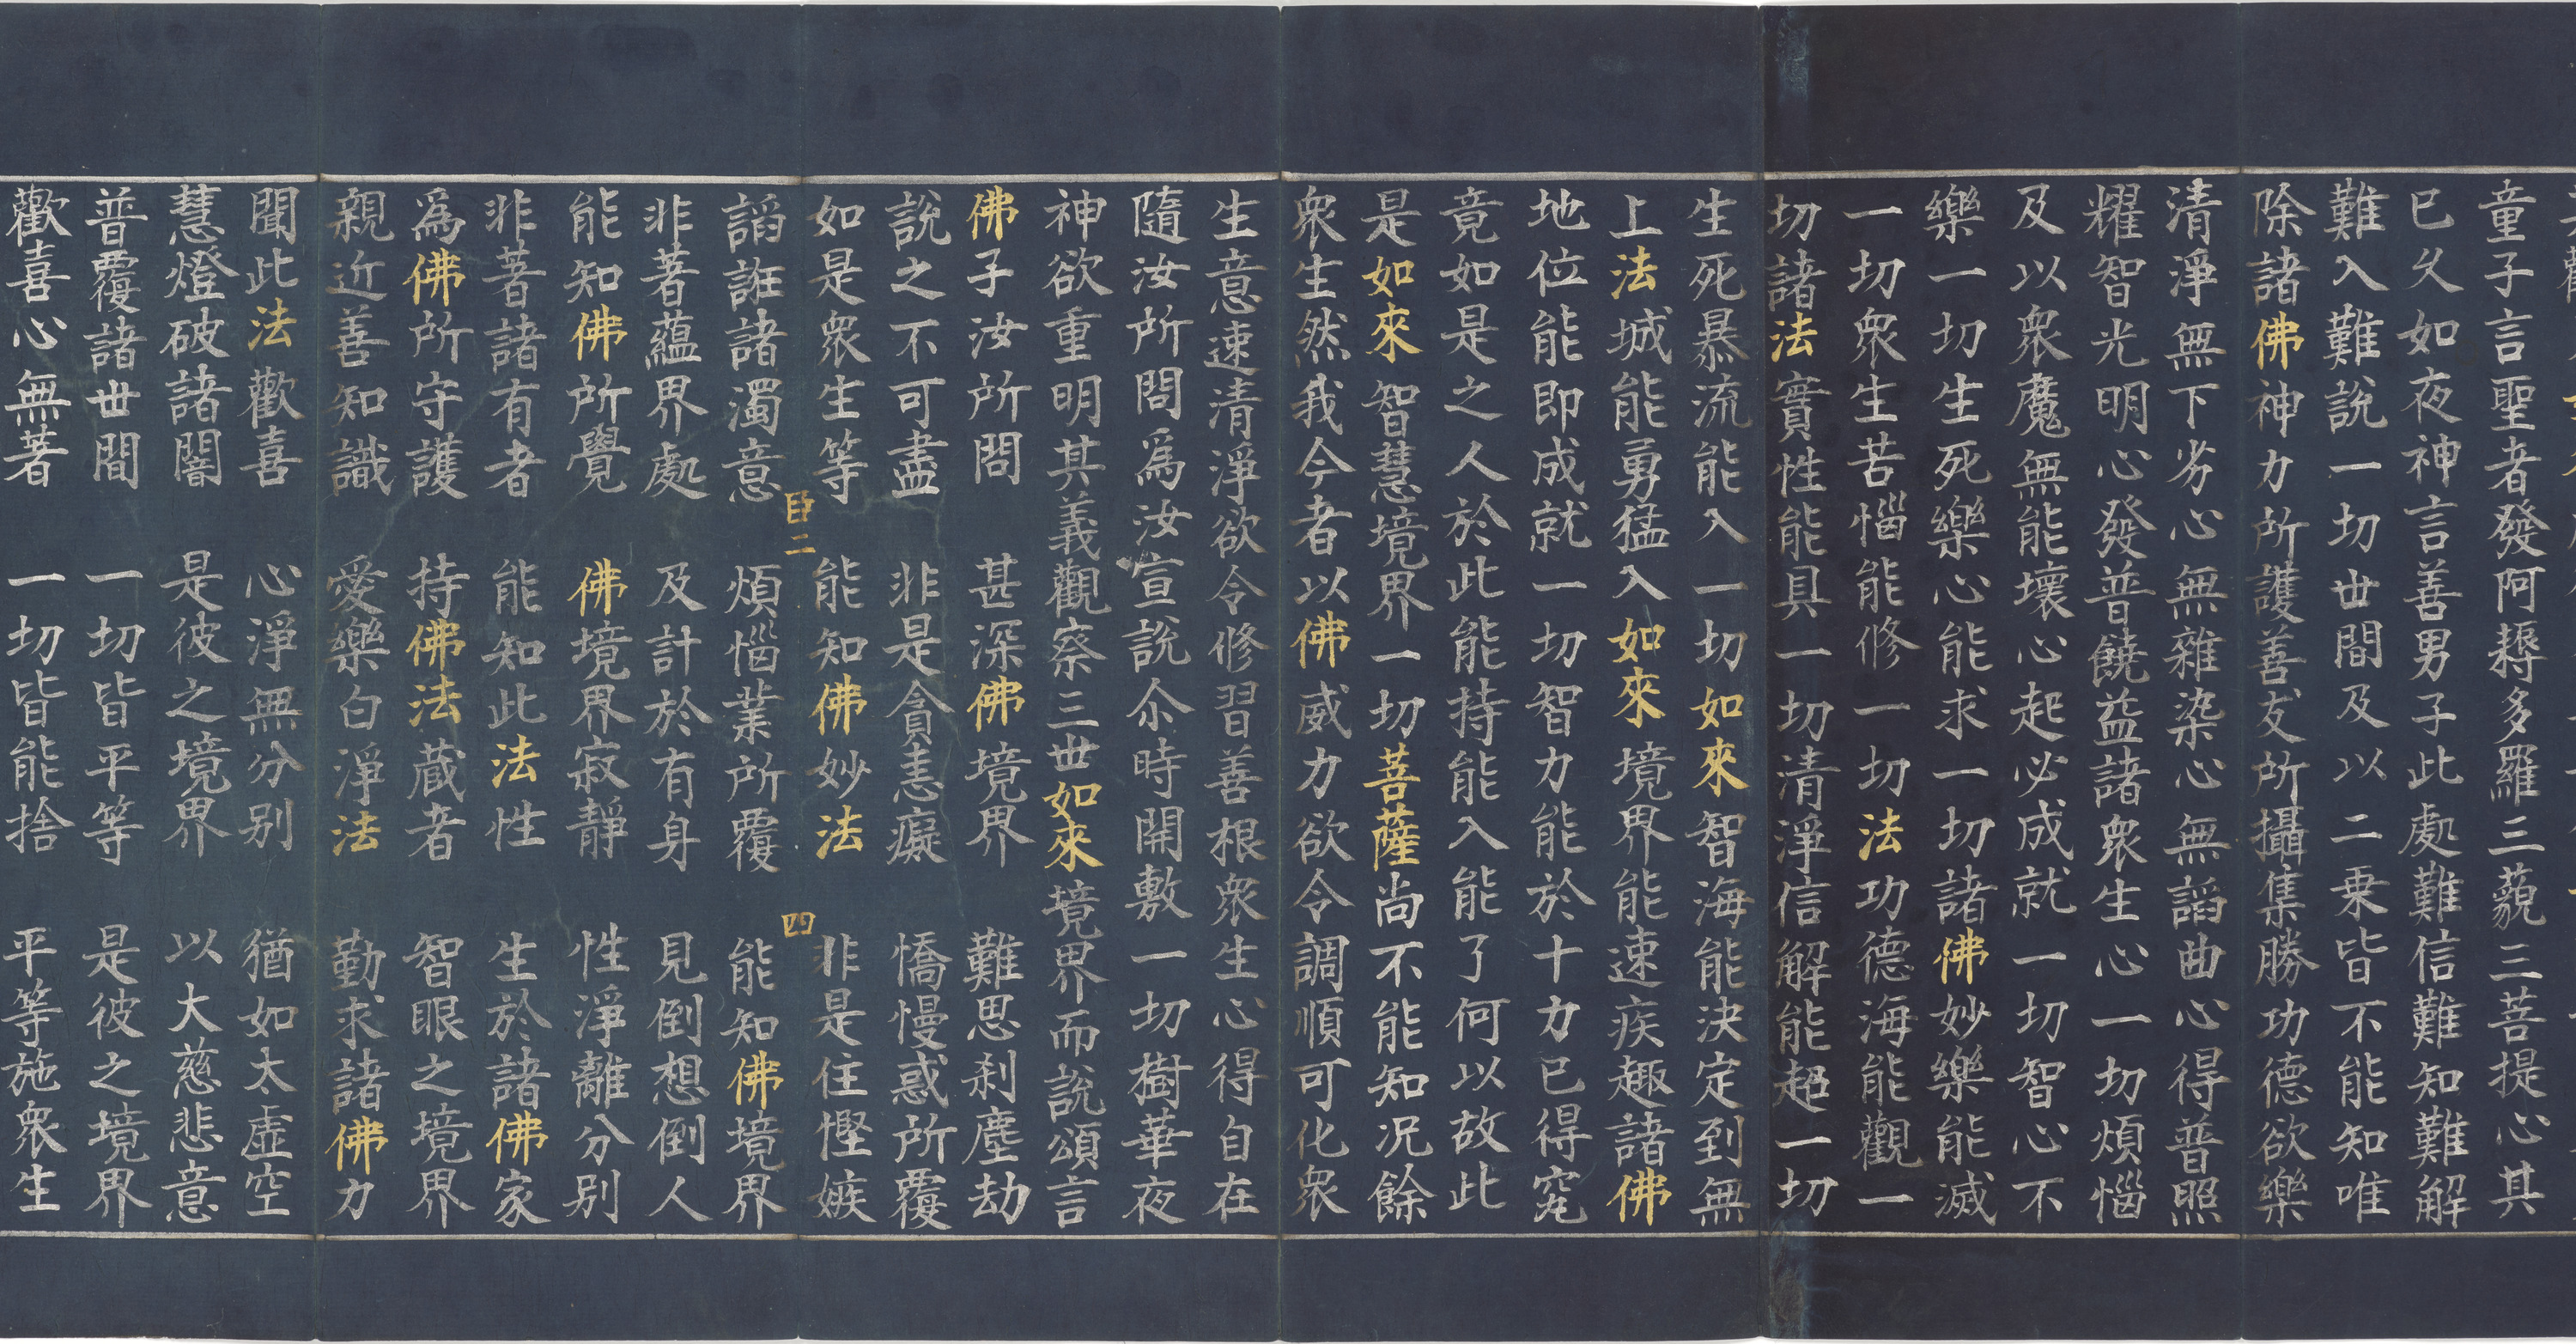 童子言聖者發阿耨多羅三藐三菩提心其
已久如夜神言善男子此處難信難知難解
難入難說一切世間及以二乗皆不能知唯
除諸佛神力所護善友所攝集勝功德欲樂
清淨無下劣心無雜染心無謟曲心得普照
耀智光明心發普饒益諸衆生心一切煩惱
及以衆魔無能壞心起必成就一切智心不
樂一切生死樂心能求一切諸佛妙樂能滅
一切衆生苦惱能修一切法功德海能觀一
切諸法實性能具一切清淨信解能超一切
生死暴流能入一切如來智海能決定到無
上法城能勇猛入如來境界能速疾趣諸佛
地位能即成就一切智力能於十力已得究
竟如是之人於此能持能入能了何以故此
是如來智慧境界一切菩薩尚不能知況餘
衆生然我今者以佛威力欲令調順可化衆
生意速清淨欲令修習善根衆生心得自在
隨汝所問爲汝宣說尒時開敷一切樹華夜
神欲重明其義觀察三世如來境界而說頌言
佛子汝所問　甚深佛境界　難思刹塵劫
說之不可盡　非是貪恚癡　憍慢惑所覆
如是衆生等　能知佛妙法　非是住慳嫉
臣二　四
謟誑諸濁意　煩惱業所覆　能知佛境界
非著蘊界處　及計於有身　見倒想倒人
能知佛所覺　佛境界寂靜　性淨離分別
非著諸有者　能知此法性　生於諸佛家
爲佛所守護　持佛法蔵者　智眼之境界
親近善知識　愛樂白淨法　勤求諸佛力
聞此法歡喜　心淨無分別　猶如太虛空
慧燈破諸闇　是彼之境界　以大慈悲意
普覆諸世間　一切皆平等　是彼之境界
歡喜心無著　一切皆能捨　平等施衆生